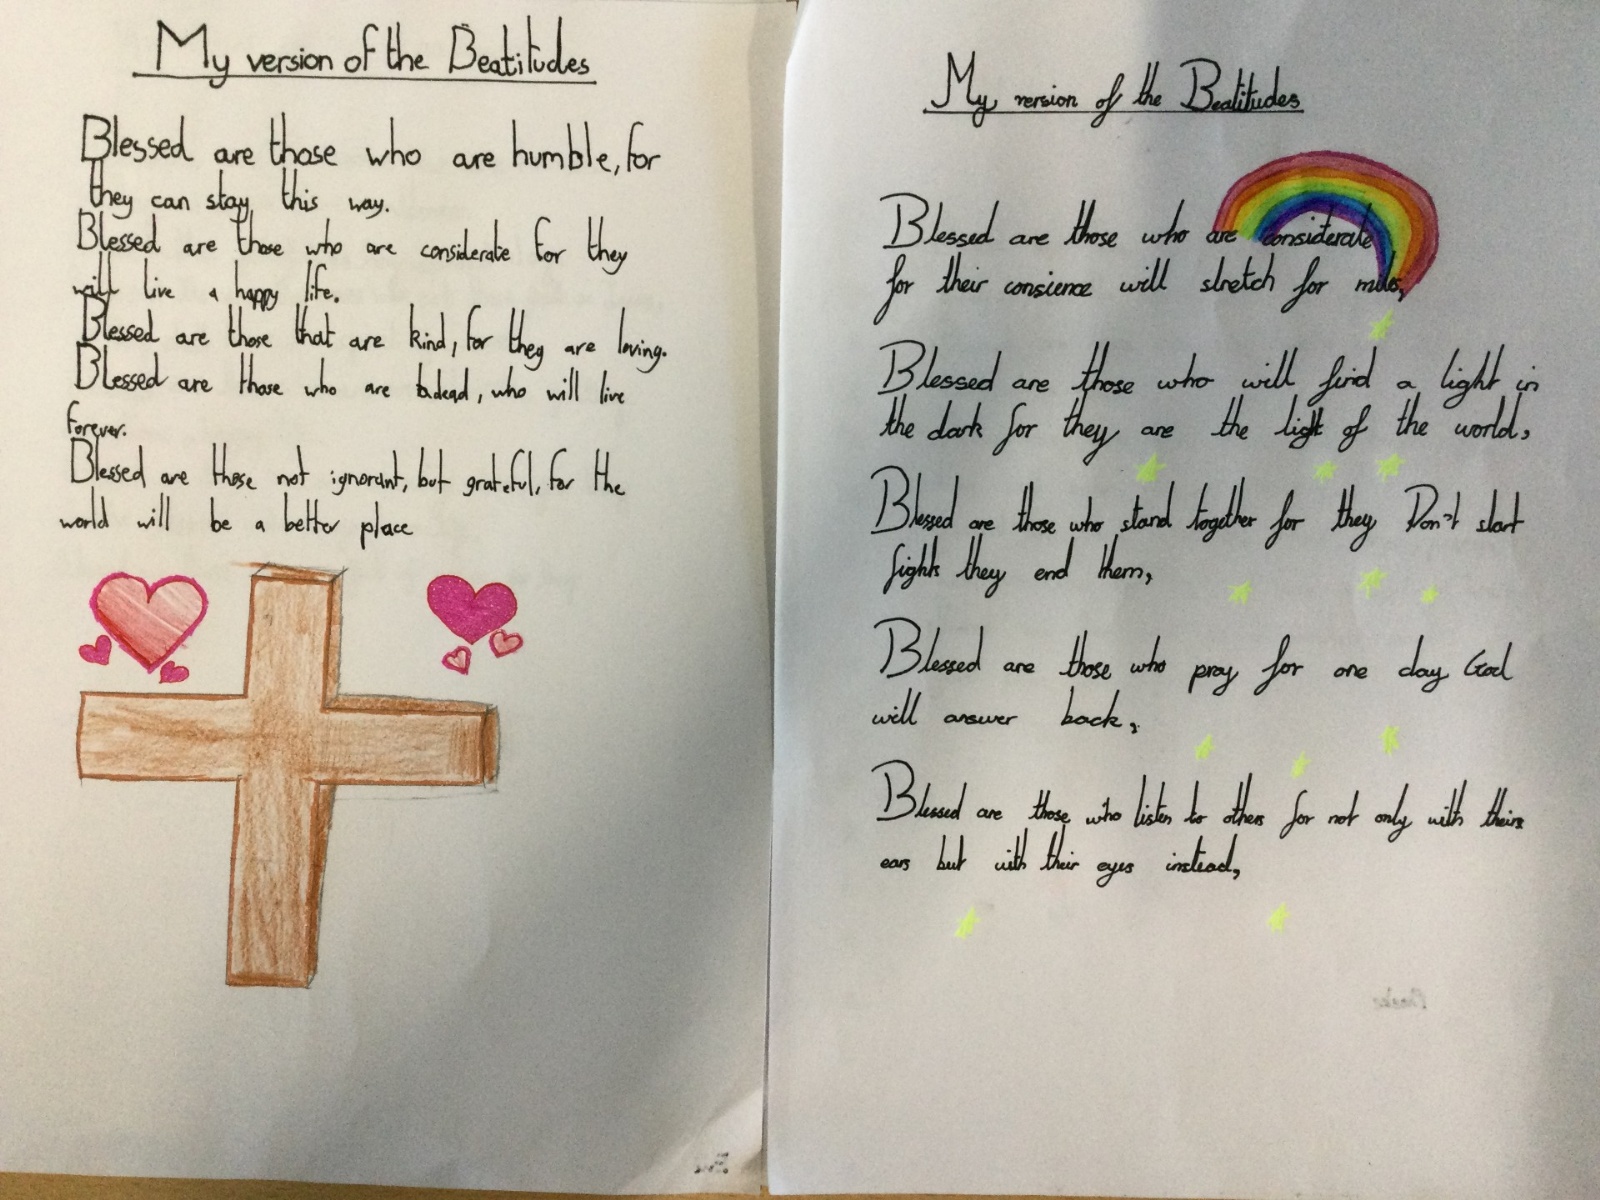 My version of the Beatitudes
Blessed are those who are humble, for
they can stay this way.
Blessed are those who are considerate for they
will live a happy life.
Blessed are those that are kind, for they are loving.
Blessed are those who are dead, who will live
forever.
Blessed are those not ignorant, but grateful, for the
world will be a better place
My version of the Beatitudes
Blessed are those who are considerate
for their consience will stretch for miles,
Blessed are those who will find a light in
the dark for they are the light of the world,
Blessed are those who stand together for they Don't start
fights they end them,
Blessed are those who pray for one day God
will answer back,
Blessed are those who listen to others for not only with theirs
ears but with their eyes instead,